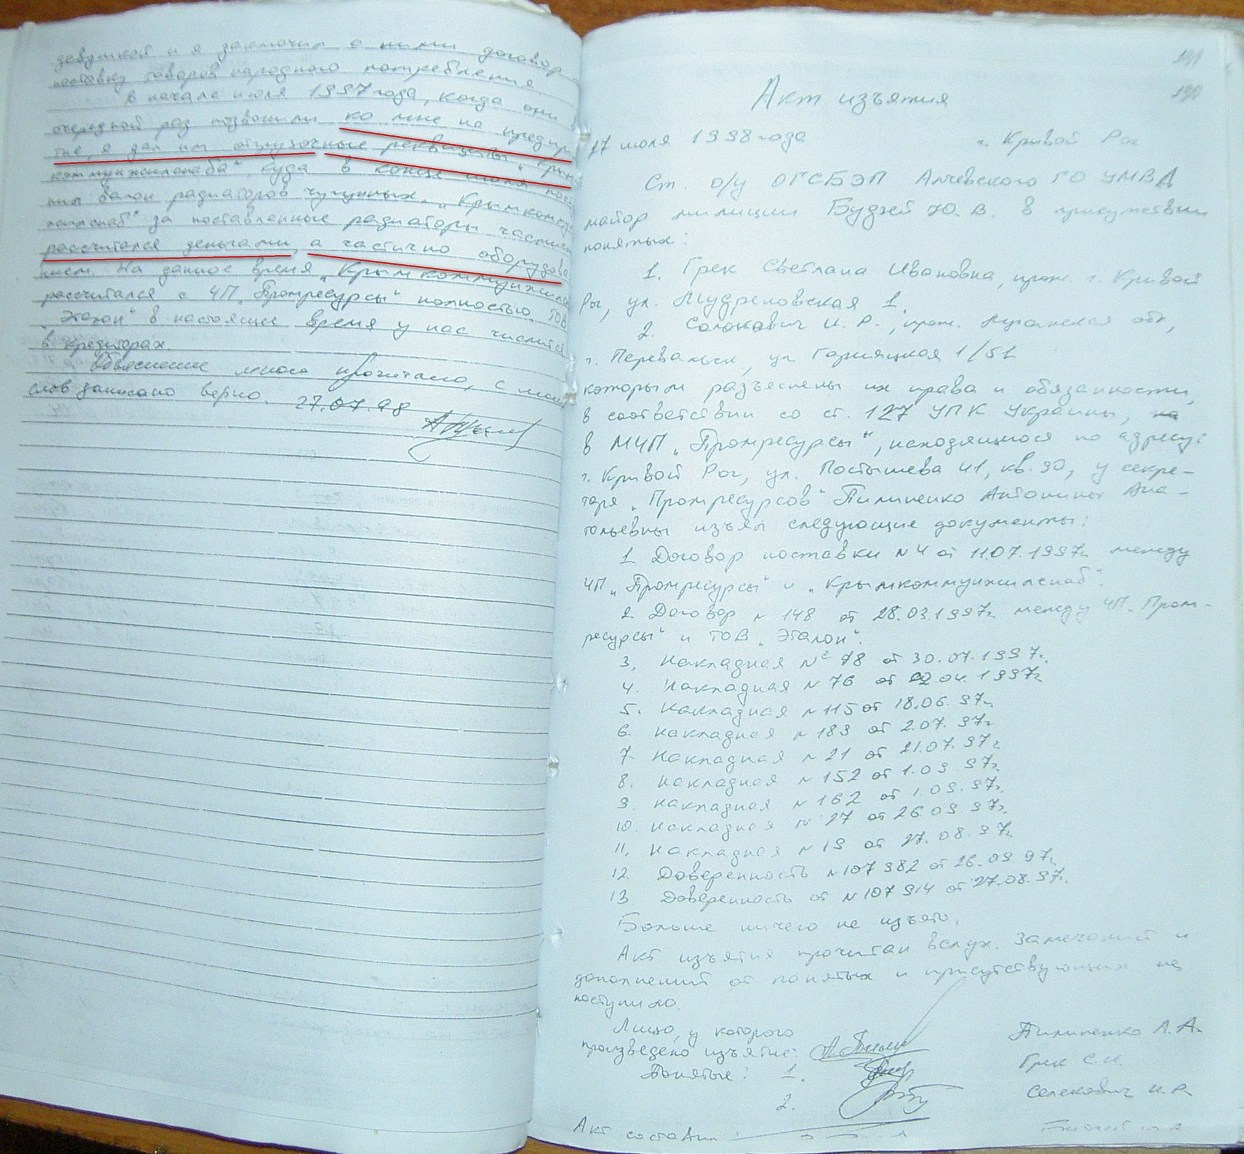 девушкой и я заключил с ними договор
поставку товаров народного потребления
В начале июля 1997 года, когда они
очередной раз позвонили ко мне на предпр
тие, я дал им отгрузочные реквизиты "Крым
коммунжилснаба", куда в конце июля
вагон радиаторов чугунных. "Крымкомму
жилснаб" за поставленные радиаторы частич
рассчитался деньгами, а частично оборудова
нием. На данное время "Крымкоммунжилс
рассчитался с ЧП "Промресурсы" полностью. ТОВ
"Эталон" в настоящее время у нас числится
в кредиторах.
Объяснение мною прочитано, с моих
слов записано верно. 27.07.98
191
190
Акт изъятия
17 июля 1998 года г. Кривой Рог
Ст. о/у ОГСБЭП Алчевского ГО УМВД
майор милиции Будзей Ю.В. в присутствии
понятых:
1. Грек Светлана Ивановна, прож. г. Кривой
Рог, ул. Мудреновская 1.
2. И.Р., прож. Луганская обл,
г. Перевальск, ул Горняцкая 1/51
которым разъяснены их права и обязанности,
в соответствии со ст. 127 УПК Украины,
в МЧП "Промресурсы", находящиюся по адресу:
г. Кривой Рог, ул. Постышева 41, кв. 90, у секре-
таря "Промресурсов" Пилипенко Антонины Ана-
тольевны изъял следующие документы:
1 Договор поставки N4 от 11.07.1997г между
ЧП "Промресурсы" и "Крымкоммунжилснаб".
2. Договор N 148 от 28.03.1997г между ЧП "Пром-
ресурсы" и ТОВ "Эталон".
3. Накладная № 78 от 30.07.1997г.
4. Накладная N 76 от 02.04.1997г
5. Накладная N 115 от 18.06.97г.
6. Накладная N 183 от 2.07.97г.
7. Накладная N 21 от 21.07.97г.
8. Накладная N 152 от 1.09.97г.
9. Накладная N 162 от 1.09.97г.
10. Накладная N 27 от 26.09.97г.
11. Накладная N 19 от 27.08.97г.
12. Доверенность N 107982 от 26.09.97г.
13. Доверенность от N 107914 от 27.08.97г.
Больше ничего не изъято.
Акт изъятия прочитан вслух. Замечаний и
дополнений от понятых и присутствующих не
поступило.
Лицо, у которого
произведено изъятие: Пилипенко А.А.
Понятые: 1. Грек С.И.
2. Селекович И.Р.
Акт составил: